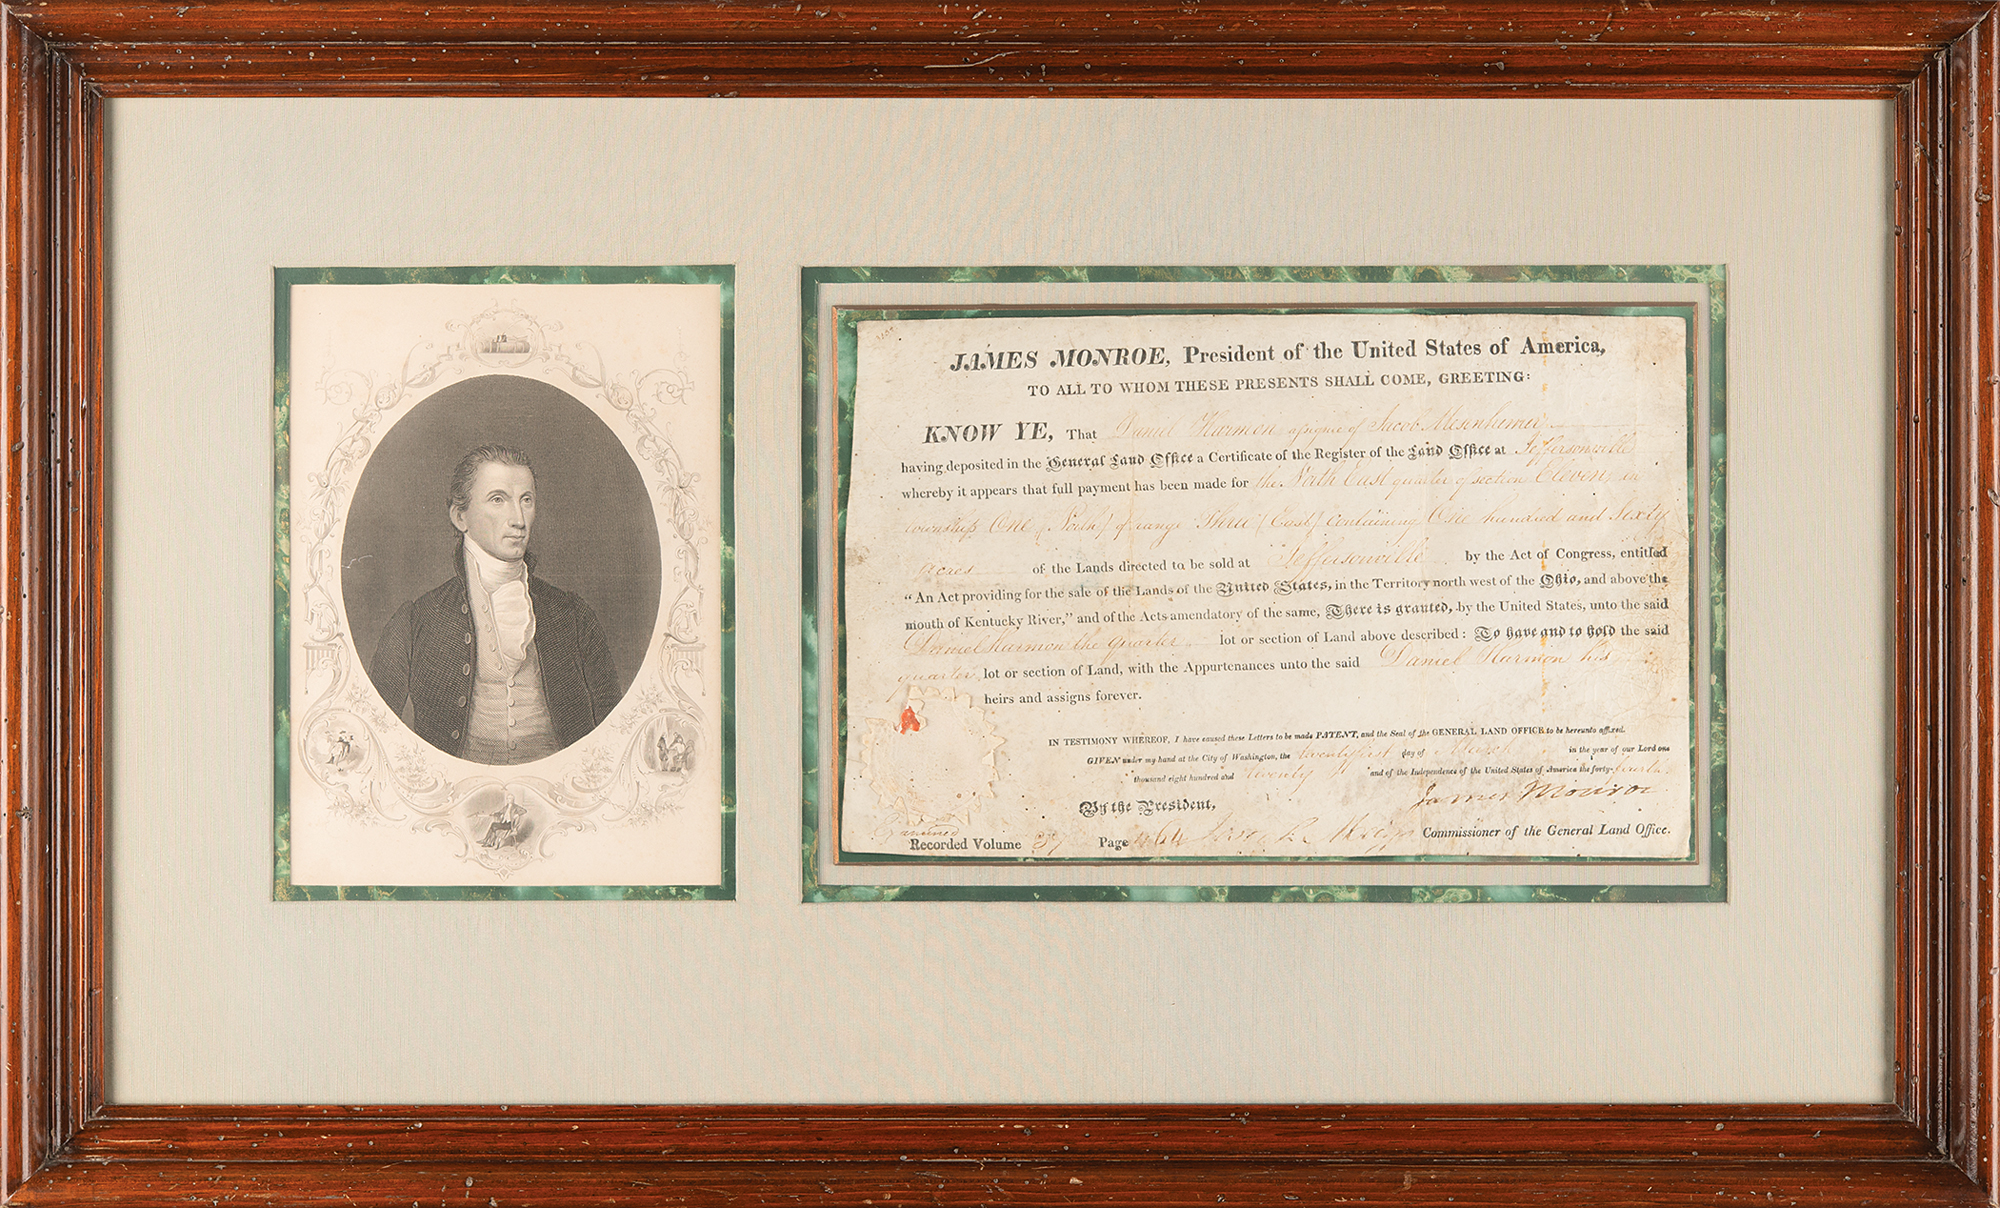 JAMES MONROE, President of the United States of America,
TO ALL TO WHOM THESE PRESENTS SHALL COME, GREETING:
KNOW YE, That Daniel Harmon assignee of Jacob Mesenheimer
having deposited in the General Land Office a Certificate of the Register of the Land Office at Jeffersonville
whereby it appears that full payment has been made for the North East quarter of section Eleven, in
township One (North) of range Three (East) containing One hundred and Sixty
acres of the Lands directed to be sold at Jeffersonville by the Act of Congress, entitled
“An Act providing for the sale of the Lands of the United States, in the Territory north west of the Ohio, and above the
mouth of Kentucky River,” and of the Acts amendatory of the same, There is granted, by the United States, unto the said
Daniel Harmon the quarter lot or section of Land above described: To have and to hold the said
quarter lot or section of Land, with the Appurtenances unto the said Daniel Harmon his
heirs and assigns forever.
IN TESTIMONY WHEREOF, I have caused these Letters to be made PATENT, and the Seal of the GENERAL LAND OFFICE to be hereunto affixed.
GIVEN under my hand at the City of Washington, the twentyfirst day of March in the year of our Lord one
thousand eight hundred and twenty and of the Independence of the United States of America the forty-fourth.
James Monroe
By the President,
Josiah Meigs Commissioner of the General Land Office.
Examined
Recorded Volume 37 Page 464